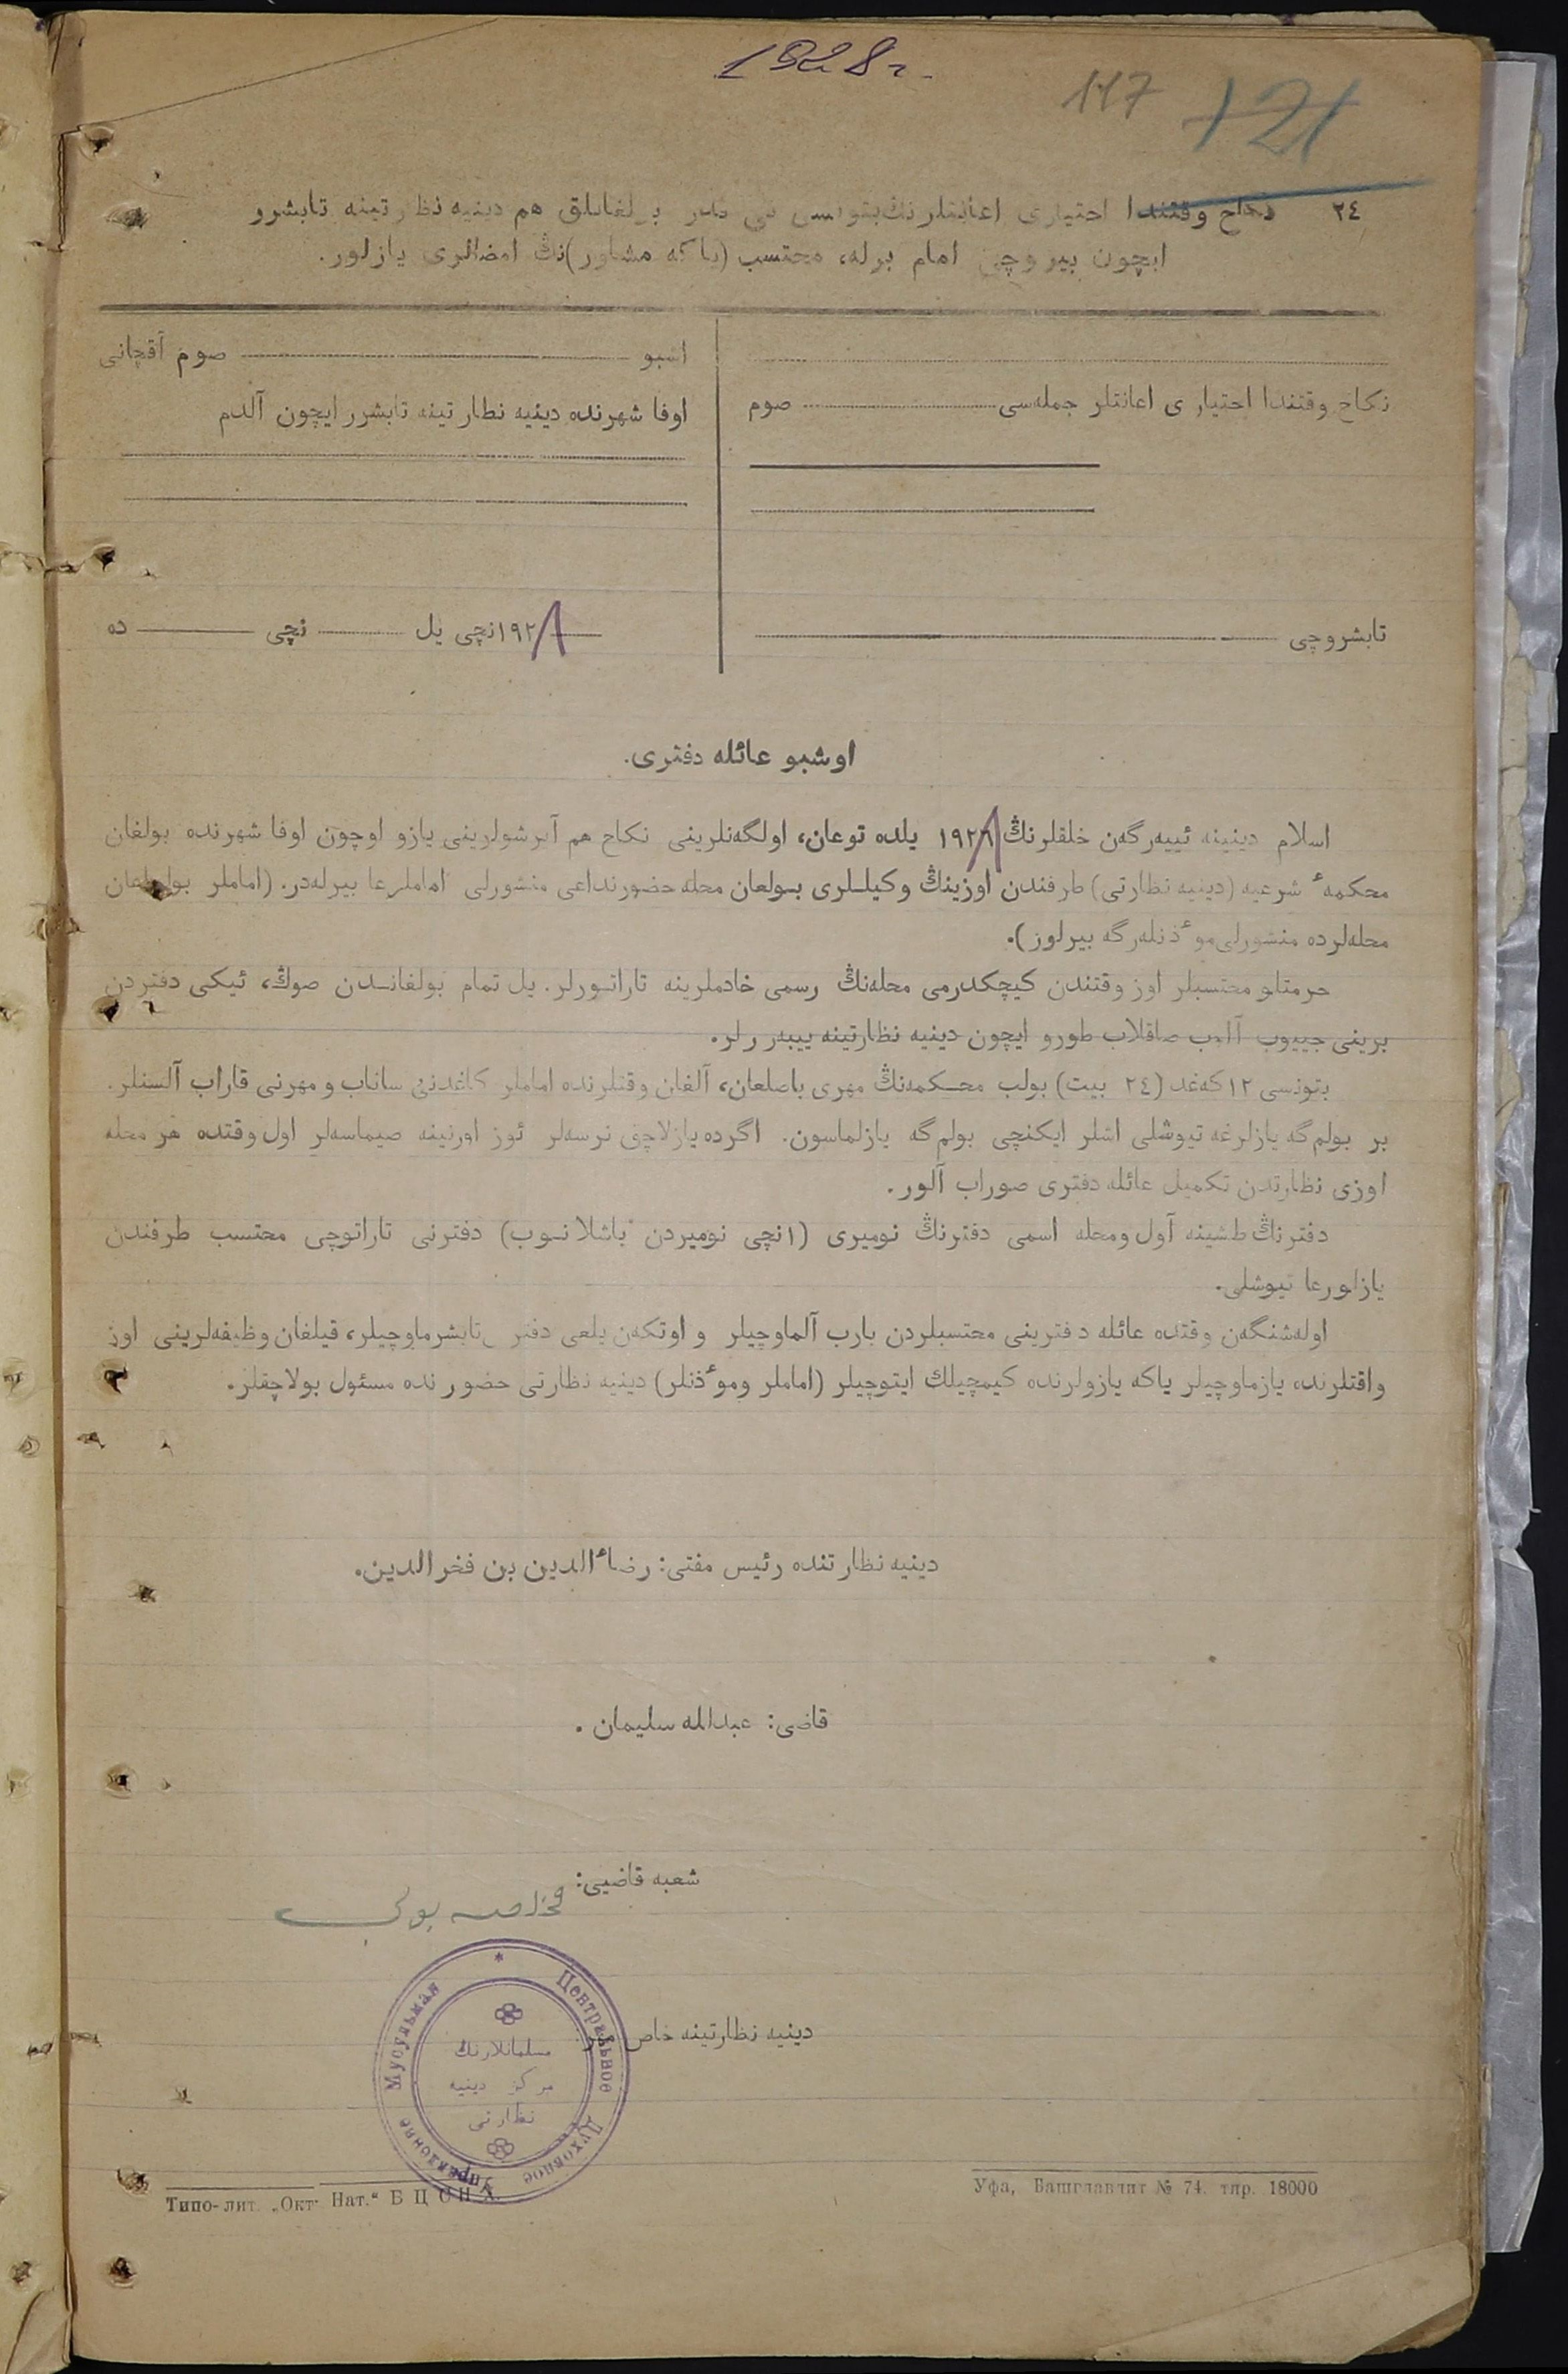 1928 г.
117 121
٢٤ نكاح وقتندا اختیاری اعانتلرنڭ بتونسی نی قدر بولغانلق هم دینیه نظارتینه تابشرر
ایچون بیروچی امام برله، محتسب (یا که مشاور)نڭ امضالری یازلور.
نكاح وقتندا اختیاری اعانتلر جمله‌سی صوم
تابشروچی
اشبو صوم آقچانی
اوفا شهرنده دینیه نظارتینه تابشرر ایچون آلدم
١٩٢٨نچی یل نچی ده
اوشبو عائله دفتری.
اسلام دینینه ئییه‌رگه‌ن خلقلرنڭ ١٩٢٨ یلده توعان، اولگه‌نلرینی نكاح هم آیرشولرینی یازو اوچون اوفا شهرنده بولغان
محكمهٔ شرعیه (دینیه نظارتی) طرفندن اوزینڭ وكیللری بولعان محله حضورنداعی منشورلی اماملرعا بیرله‌در. (اماملر بولماعان
محله‌لرده منشورلی موٴذنله‌رگه بیرلور).
حرمتلو محتسبلر اوز وقتندن كیچكدرمی محله‌نڭ رسمی خادملرینه تاراتورلر. یل تمام بولغانـدن صوڭ، ئیكی دفتردن
برینی جییوب آلوب صاقلاب طورو ایچون دینیه نظارتینه ییبه‌ررلر.
بتونسی ١٢ كه‌غد (٢٤ بیت) بولب محـكمه‌نڭ مهری باصلعان، آلغان وقتلرنده اماملر كاغدنی ساناب و مهرنی قاراب آلسنلر.
بر بولم‌گه یازلرغه تیوشلی اشلر ایكنچی بولم‌گه یازلماسون. اگرده یازلاچق نرسه‌لر ئوز اورنینه صیماسه‌لر اول وقتده هر محله
اوزی نظارتدن تكمیل عائله دفتری صوراب آلور.
دفترنڭ طشینه آول ومحله اسمی دفترنڭ نومیری (١نچی نومیردن باشلانـوب) دفترنی تاراتوچی محتسب طرفندن
یازلورعا تیوشلی.
اوله‌شنگه‌ن وقتده عائله دفترینی محتسبلردن بارب آلماوچیلر و اوتكه‌ن یلعی دفترنی تابشرماوچیلر، قیلغان وظیفه‌لرینی اوز
واقتلرنده یازماوچیلر یاكه یازولرنده كیمچیلك ایتوچیلر (اماملر وموٴذنلر) دینیه نظارتی حضورنده مسئول بولاچقلر.
دینیه نظارتنده رئیس مفتی: رضاٴالدین بن فخرالدین.
قاضی: عبدالله سلیمان .
شعبه قاضیی:
دینیه نظارتینه خاص مهر.
Центральное Духовное Управление Мусульман
مسلمانلارنڭ
مركز دینیه
نظارتی
Типо-лит. „Окт. Нат.“ Б Ц С Н Х.
Уфа, Башглавлит № 74. тир. 18000